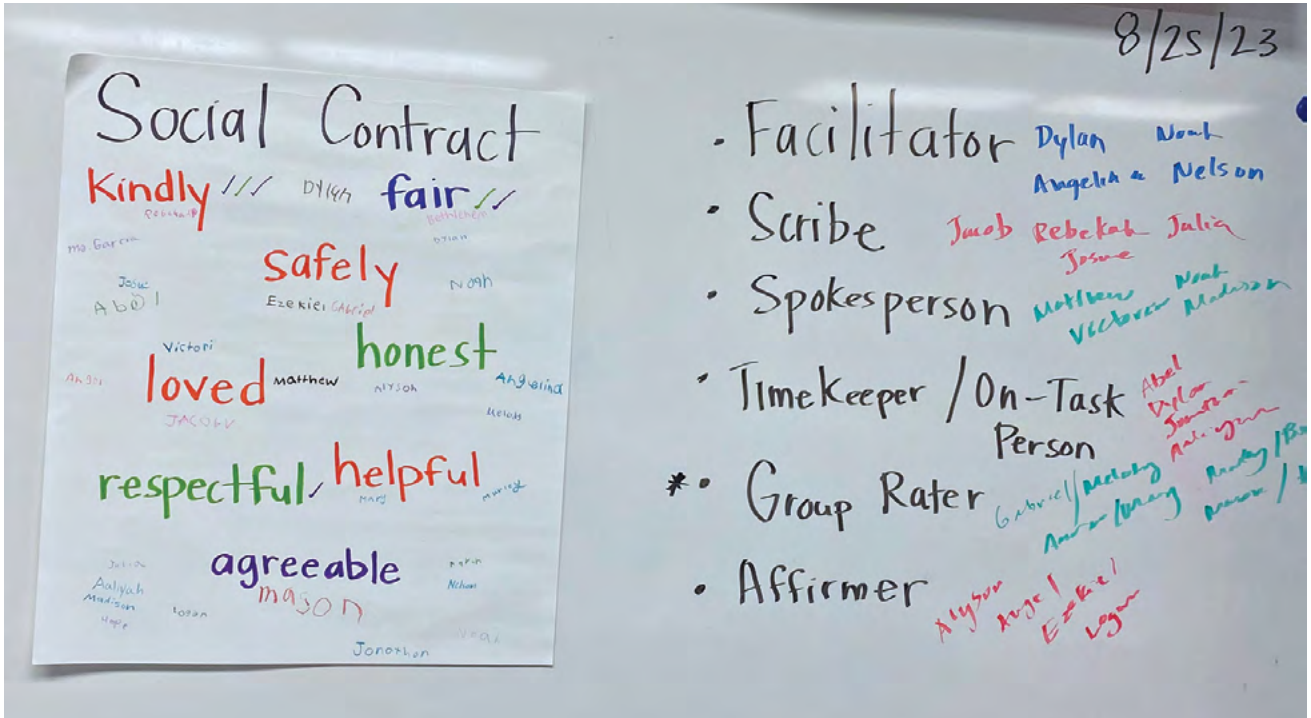 8/25/23
Social Contract
Kindly /// Dylan fair //
Ms. Garcia Dylan
safely
Josue Noah
Abel Ezekiel Gabriel
Victori honest
Angel loved Matthew Alyson Angelina
JACOB Melody
respectful / helpful
Mary
agreeable
Julia
Aaliyah Nelson
Madison mason Logan
Hope
Jonathon
· Facilitator Dylan Noah
Angelina Nelson
· Scribe Jacob Rebekah Julia
Josue
· Spokesperson Matthew Noah
Victoria Madison
· TimeKeeper / On-Task Abel
Person Dylan
Jonathan
Aaliyah
* · Group Rater Gabriel/Melody
· Affirmer Alyson Angel Ezekiel Logan